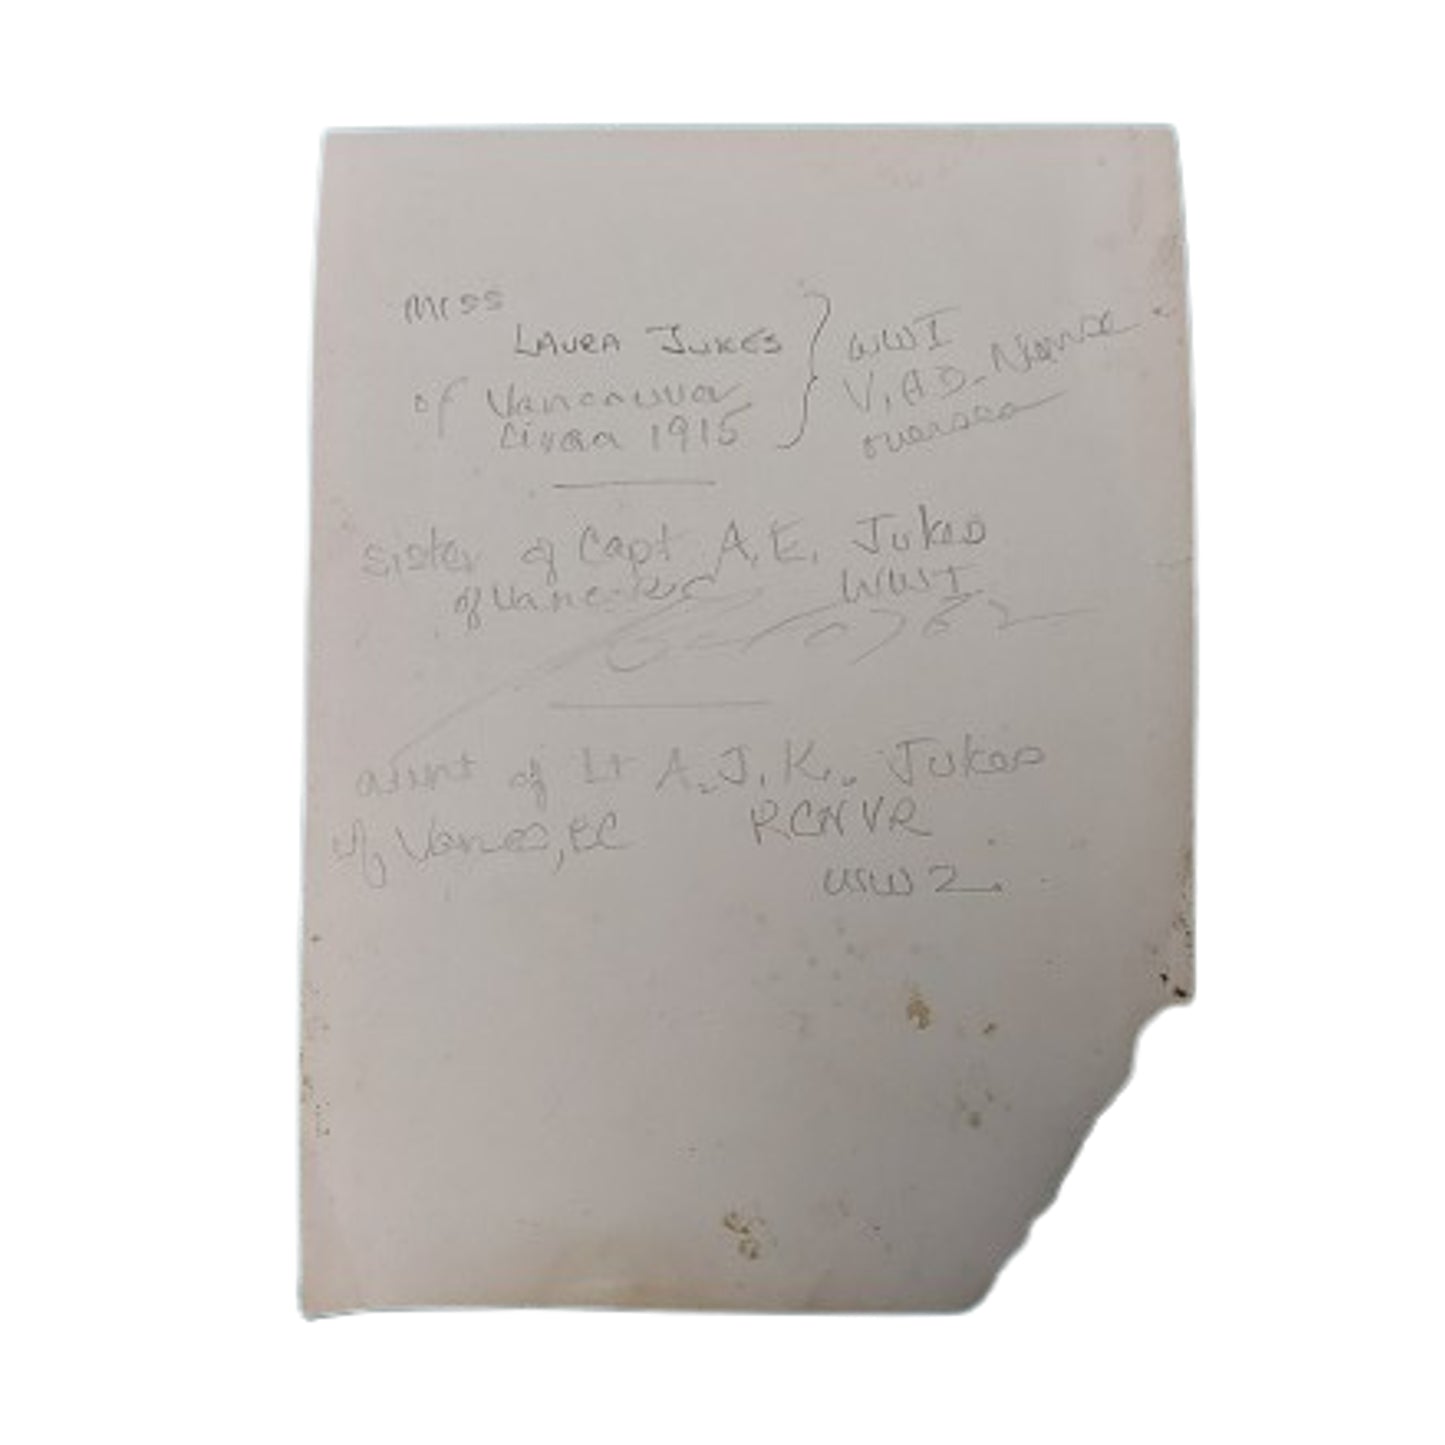 Miss
LAURA JUKES
of Vancouver
circa 1915
WWI
V.A.D. Nurse
overseas
sister of Capt A.E. Jukes
of Vancouver WWI
aunt of Lt A.J.K. Jukes
of Vanc, BC RCNVR
WW2.